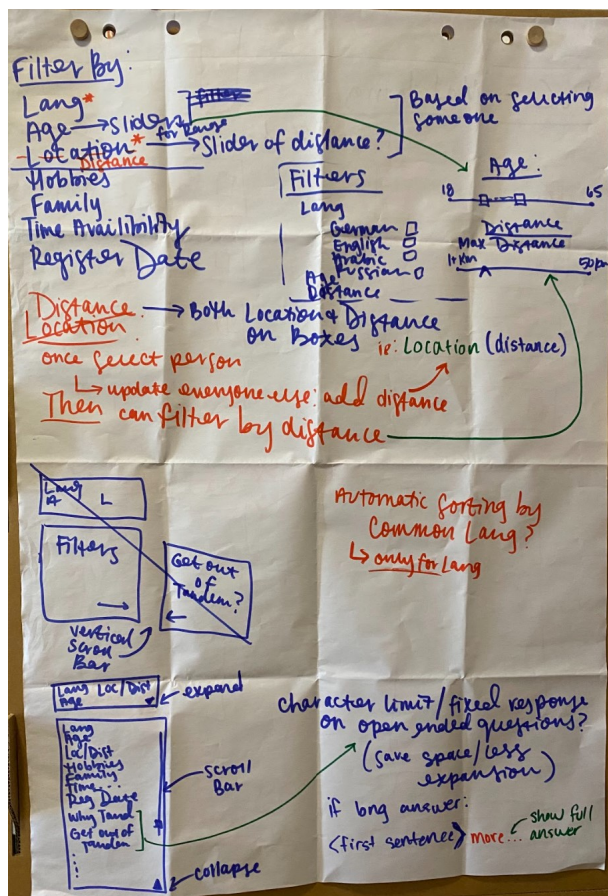 Filter By:
Lang*
Age → Sliders for range
Location* → Slider of distance?
Distance
Hobbies
Family
Time Availibility
Register Date
Based on selecting someone
Filters
Lang
German
English
Arabic
Russian
Age
Distance
Age:
18 65
Distance
Max Distance
1+ Km 50 km
Distance → Both Location & Distance
Location on Boxes
ie: Location (distance)
once select person
↳ update everyone else: add distance
Then can filter by distance
Lang
L
Filters
Get out
of
Tandem?
vertical
Scroll
Bar
Automatic Sorting by
Common Lang?
↳ only for Lang
Lang Loc/Dist
Age
expand
Lang
Age
Loc/Dist
Hobbies
Family
Time...
Reg Date
Why Tand
Get out of
Tandem
scroll
Bar
collapse
Character limit/fixed response
on open ended questions?
(save space/less
expansion)
if long answer:
<first sentence> more...
show full
answer